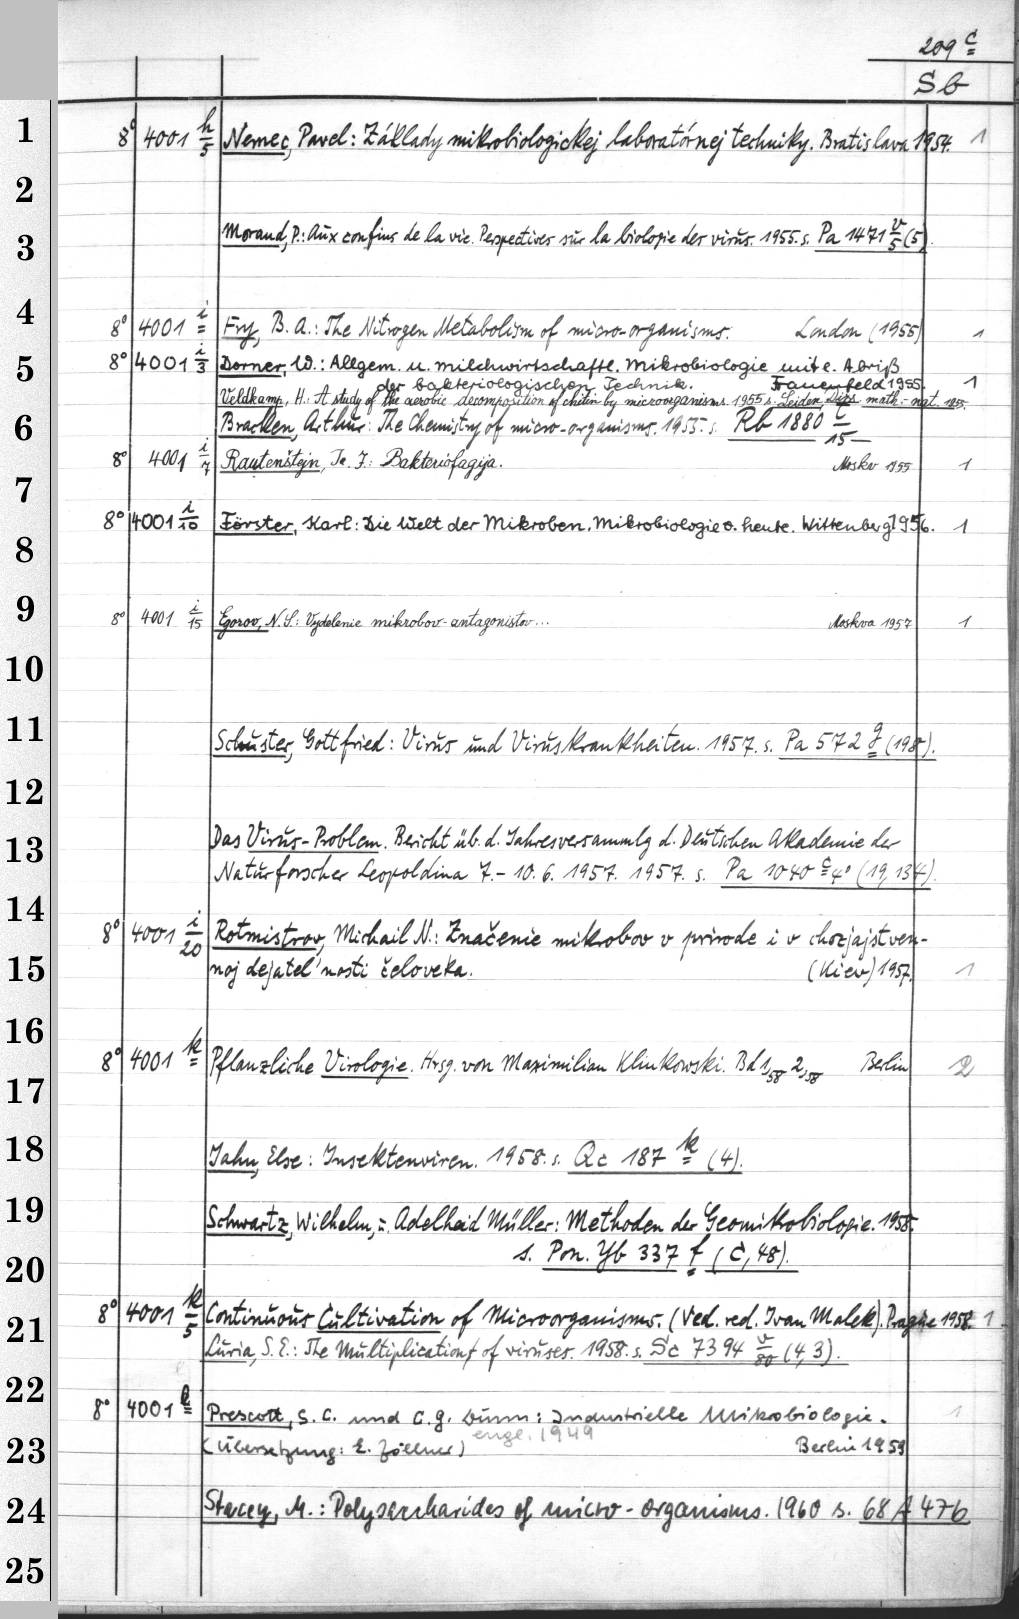 209 c
Sb
1
8° 4001 h/5 Nemec, Pavel: Základy mikrobiologickej laboratórnej techniky. Bratislava 1954. 1
2
3 Morand, P.: Aux confins de la vie. Perspectives sur la biologie des virus. 1955. s. Pa 1471 v/5 (5).
4
8° 4001 i Fry, B. A.: The Nitrogen Metabolism of micro-organisms. London (1955) 1
5 8° 4001 i/3 Dorner, W.: Allgem. u. milchwirtschaftl. Mikrobiologie mit e. Abriß
der bakteriologischen Technik. Frauenfeld 1955. 1
Veldkamp, H.: A study of the aerobic decomposition of chitin by microorganisms. 1955 s. Leiden, Diss. math.-nat. 1955.
6 Bracken, Arthur: The Chemistry of micro-organisms. 1955. s. Rb 1880 /15
8° 4001 i/7 Rautenštejn, Ja. I.: Bakteriofagija. Moskv 1955 1
7
8° 4001 i/10 Förster, Karl: Die Welt der Mikroben. Mikrobiologie v. heute. Wittenberg 1956. 1
8
9 8° 4001 i/15 Egorov, N. S.: Vydelenie mikrobov-antagonistov... Moskva 1957 1
10
11 Schuster, Gottfried: Virus und Viruskrankheiten. 1957. s. Pa 572 g (198).
12
13 Das Virus-Problem. Bericht üb. d. Jahresversammlg d. Deutschen Akademie der
Naturforscher Leopoldina 7.-10. 6. 1957. 1957. s. Pa 1040 c 4° (19, 134).
14
8° 4001 i/20 Rotmistrov, Michail N.: Značenie mikrobov v prirode i v chozjajstven-
15 noj dejatel'nosti čeloveka. (Kiev) 1957. 1
16
8° 4001 k Pflanzliche Virologie. Hrsg. von Maximilian Klinkowski. Bd 1,58 2,58 Berlin 2
17
18 Jahn, Else: Insektenviren. 1958. s. Qc 187 k (4).
19 Schwartz, Wilhelm, u. Adelheid Müller: Methoden der Geomikrobiologie. 1958.
20 s. Pon. Yb 337 f (C, 48).
21 8° 4001 k/5 Continuous Cultivation of Microorganisms. (Ved. red. Ivan Malek). Prague 1958. 1
Luria, S. E.: The Multiplication of viruses. 1958. s. Sc 7394 v/80 (4, 3).
22 8° 4001 l Prescott, S. C. und C. G. Dunn: Industrielle Mikrobiologie. 1
engl. 1949
23 (Übersetzung: E. Zöllner) Berlin 1959
24 Stacey, M.: Polysaccharides of micro-organisms. 1960 s. 68 A 476
25